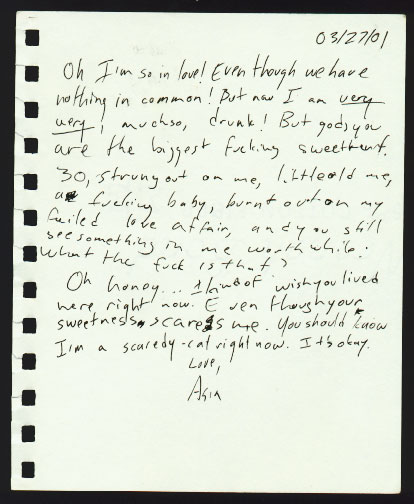 03/27/01
Oh I'm so in love! Even though we have
nothing in common! But now I am very
very, muchso, drunk! But gods, you
are the biggest fucking sweetheart.
30, strung out on me, little old me,
a fucking baby, burnt out on my
failed love affair, and you still
see something in me worthwhile.
What the fuck is that?
Oh honey... I kind of wish you lived
here right now. Even though your
sweetness scares me. You should know
I'm a scaredy-cat right now. It's okay.
Love,
Asia